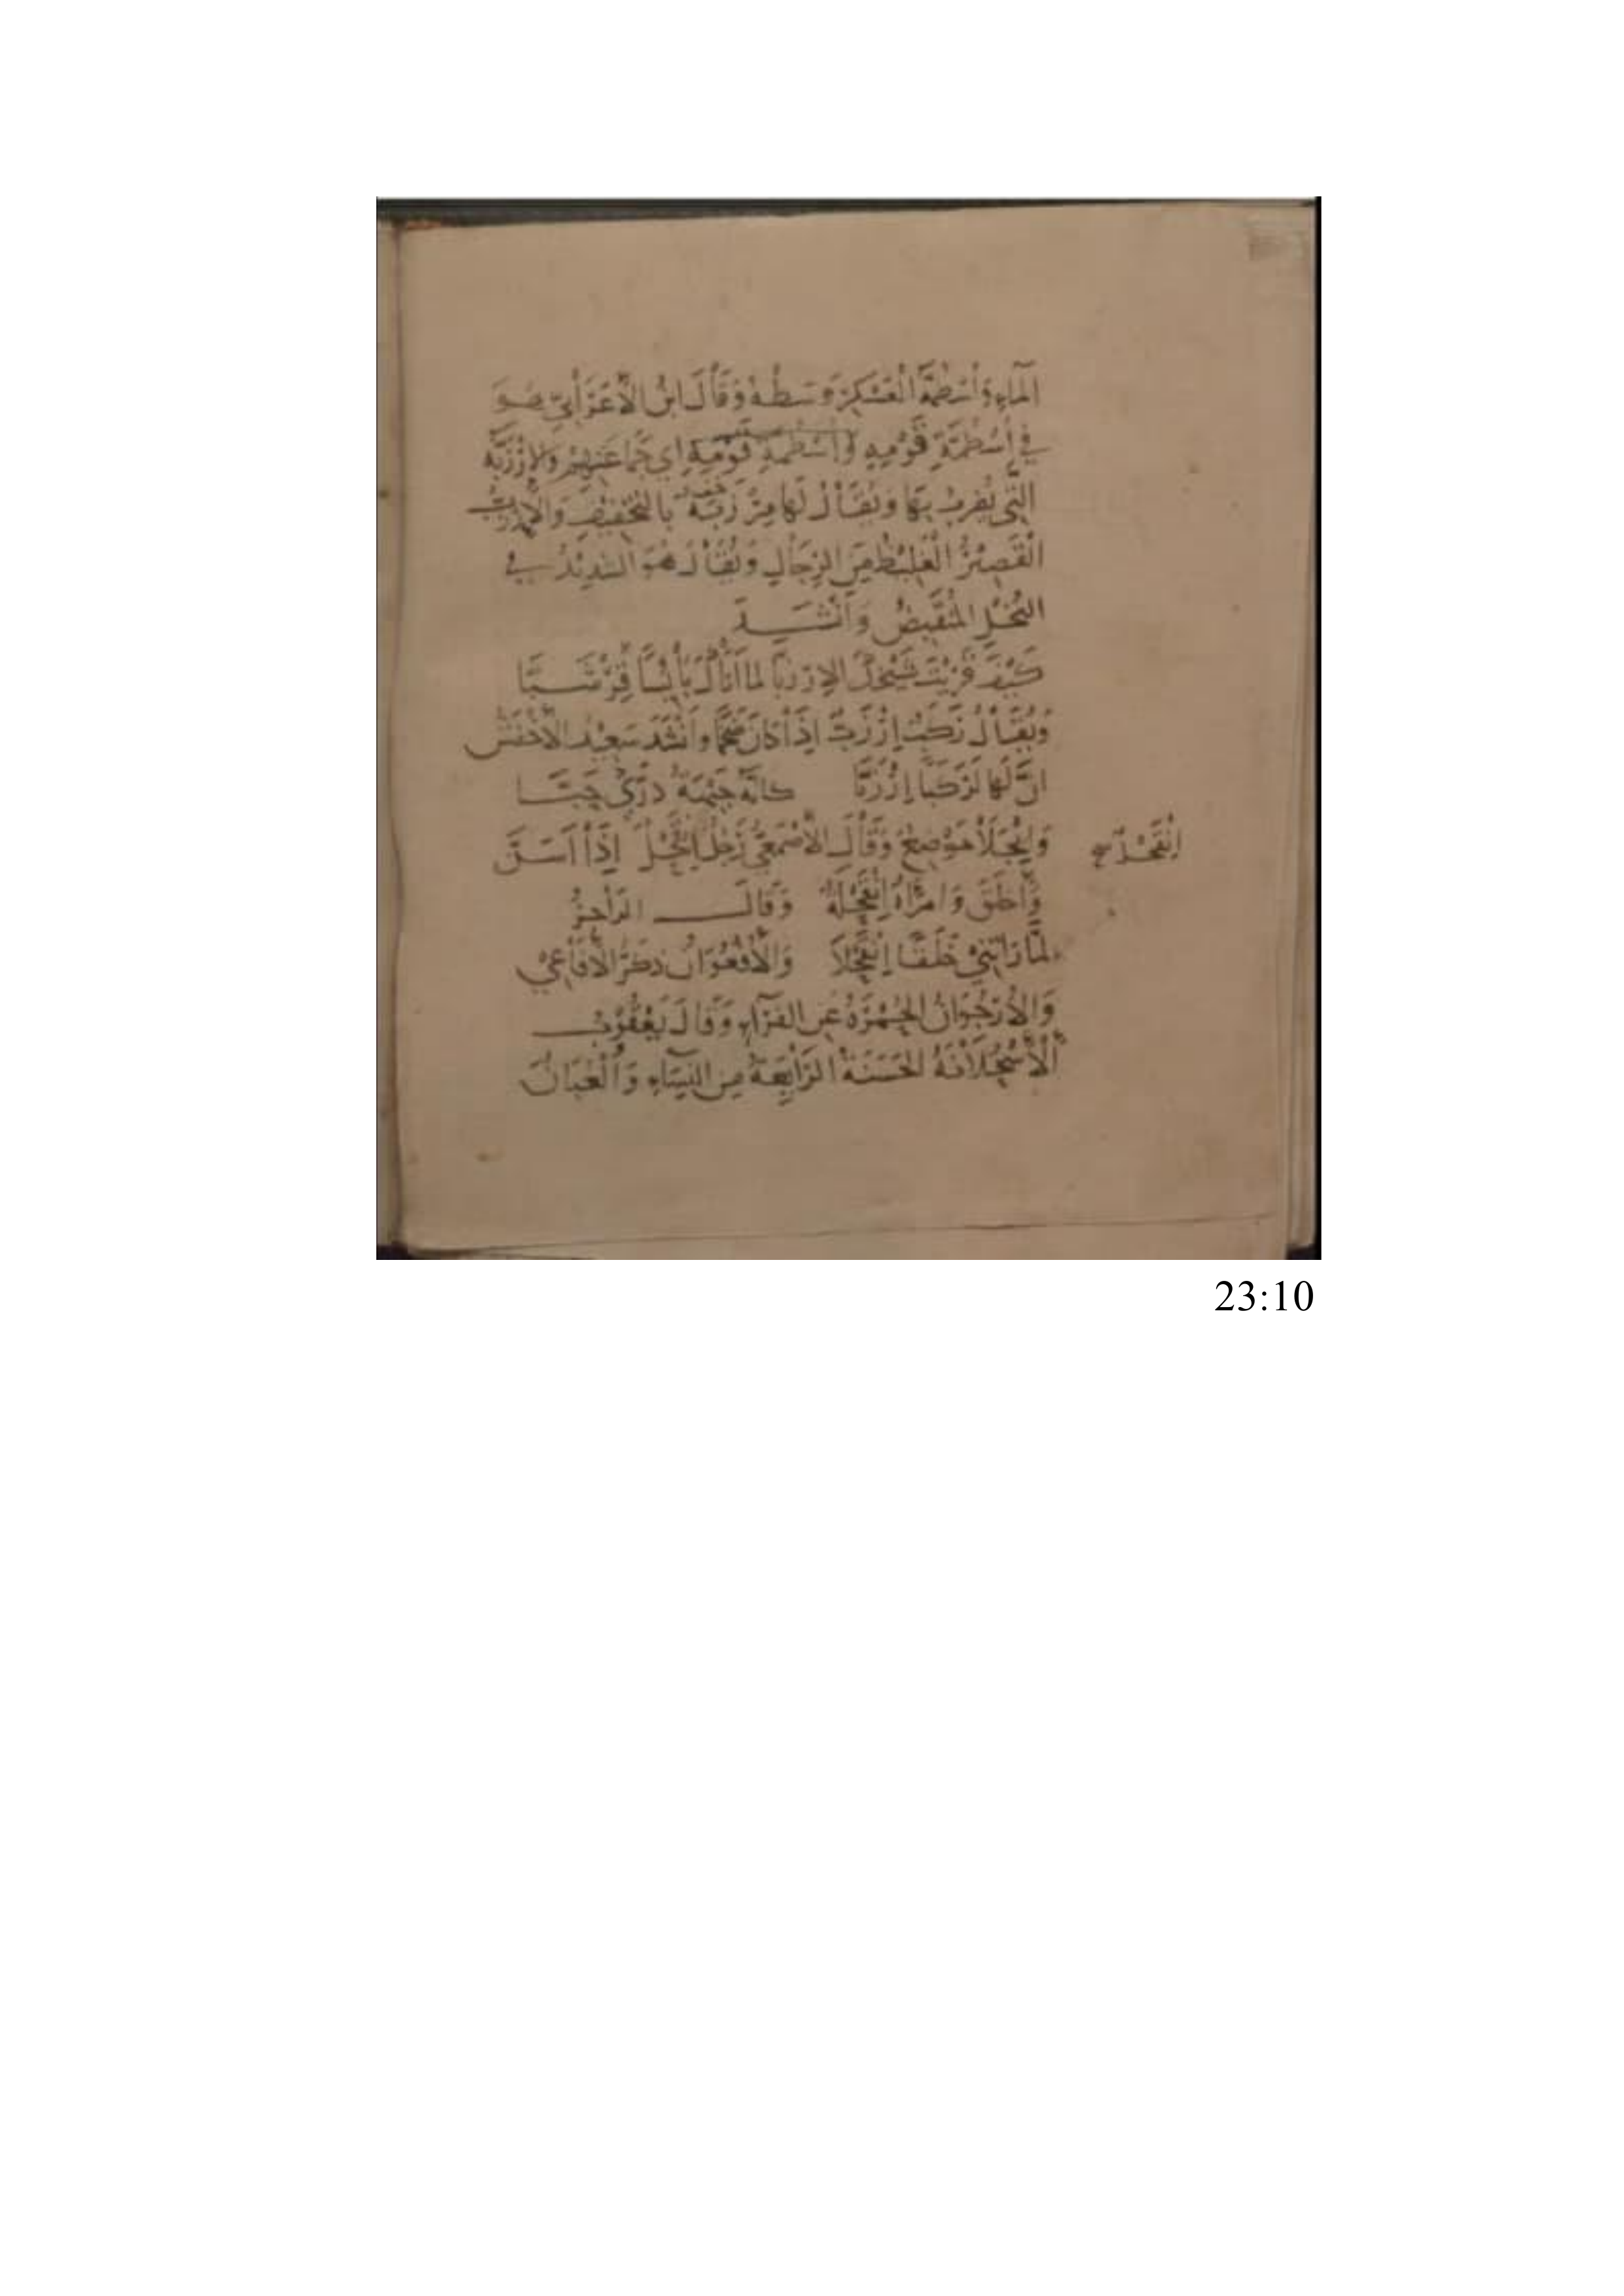 الماء وأسطمة العسكر وسطه وقال ابن الأعرابي هو
في أسطمة قومه وأسطمة قومه اي جماعتهم والإرزبة
التي يضرب بها ويقال لها مرزبة بالتخفيف والإرزب
القصير الغليظ من الرجال ويقال هو الشديد في
المنقبض وأنشد
كيف قريت شيخك الإرزبا لما أتاك بائسا قرشبا
ويقال ركب إرزب إذا كان ضخما وأنشد سعيد الأخفش
ان لها لركبا إرزبا كانه جبهة ذرى حبا
موضع وقال الأصمعي رجل إذا أسن
وأخلق وامرأة إنقحلة وقال الراجز
لما رأتني خلقا إنقحلا والأفعوان ذكر الأفاعي
والأرجوان الحمرة عن الفراء وقال يعقوب
الأسحلانة الحسنة الرائعة من النساء
إنقحل صح
23:10